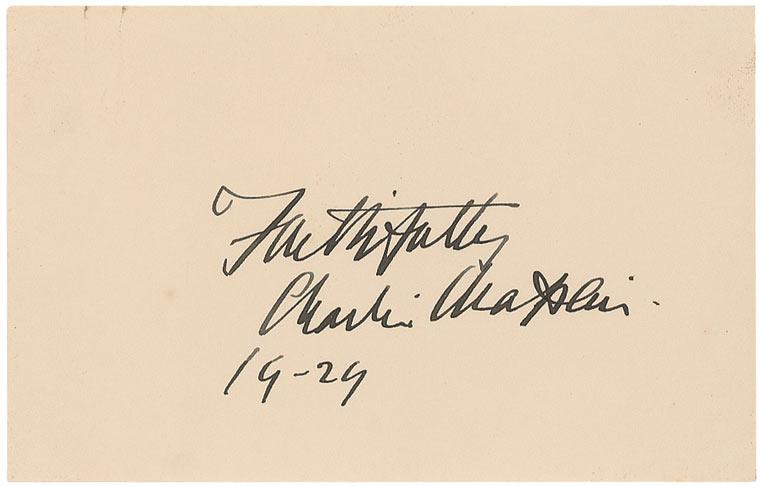 Faithfully
Charlie Chaplin.
19-29